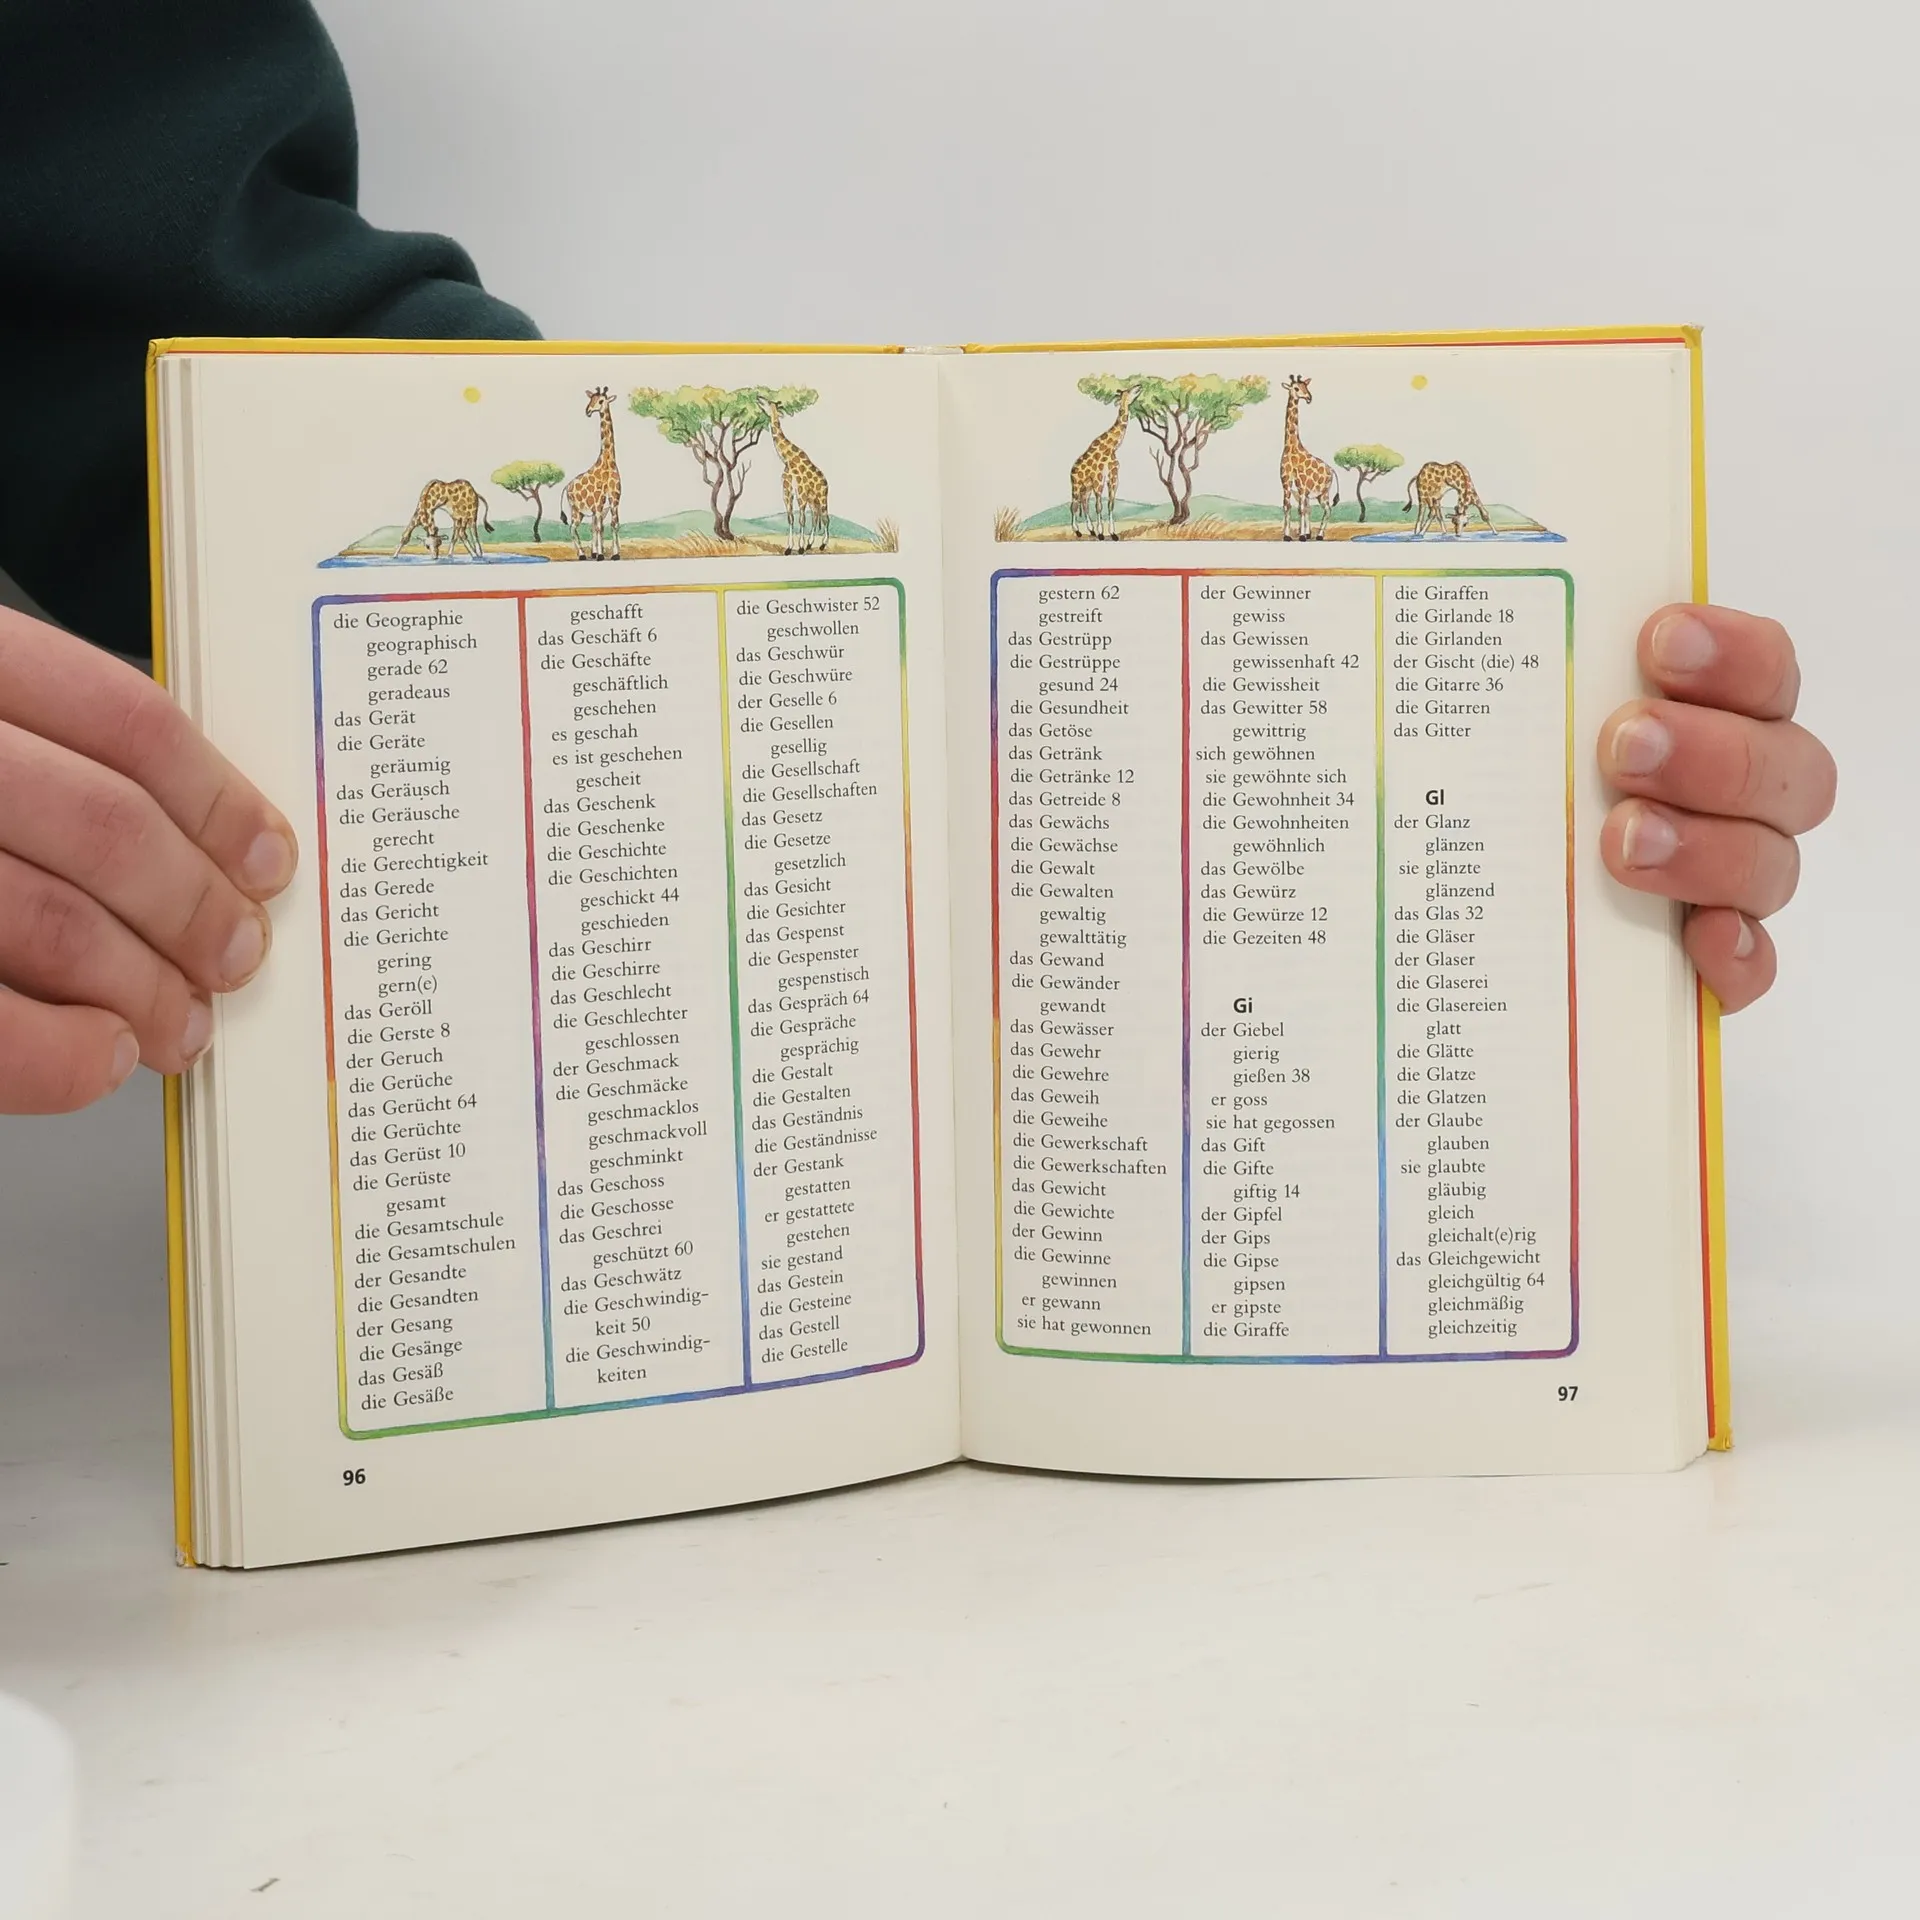 die Geographie
geographisch
gerade 62
geradeaus
das Gerät
die Geräte
geräumig
das Geräusch
die Geräusche
gerecht
die Gerechtigkeit
das Gerede
das Gericht
die Gerichte
gering
gern(e)
das Geröll
die Gerste 8
der Geruch
die Gerüche
das Gerücht 64
die Gerüchte
das Gerüst 10
die Gerüste
gesamt
die Gesamtschule
die Gesamtschulen
der Gesandte
die Gesandten
der Gesang
die Gesänge
das Gesäß
die Gesäße
geschafft
das Geschäft 6
die Geschäfte
geschäftlich
geschehen
es geschah
es ist geschehen
gescheit
das Geschenk
die Geschenke
die Geschichte
die Geschichten
geschickt 44
geschieden
das Geschirr
die Geschirre
das Geschlecht
die Geschlechter
geschlossen
der Geschmack
die Geschmäcke
geschmacklos
geschmackvoll
geschminkt
das Geschoss
die Geschosse
das Geschrei
geschützt 60
das Geschwätz
die Geschwindig-
keit 50
die Geschwindig-
keiten
die Geschwister 52
geschwollen
das Geschwür
die Geschwüre
der Geselle 6
die Gesellen
gesellig
die Gesellschaft
die Gesellschaften
das Gesetz
die Gesetze
gesetzlich
das Gesicht
die Gesichter
das Gespenst
die Gespenster
gespenstisch
das Gespräch 64
die Gespräche
gesprächig
die Gestalt
die Gestalten
das Geständnis
die Geständnisse
der Gestank
gestatten
er gestattete
gestehen
sie gestand
das Gestein
die Gesteine
das Gestell
die Gestelle
96
gestern 62
gestreift
das Gestrüpp
die Gestrüppe
gesund 24
die Gesundheit
das Getöse
das Getränk
die Getränke 12
das Getreide 8
das Gewächs
die Gewächse
die Gewalt
die Gewalten
gewaltig
gewalttätig
das Gewand
die Gewänder
gewandt
das Gewässer
das Gewehr
die Gewehre
das Geweih
die Geweihe
die Gewerkschaft
die Gewerkschaften
das Gewicht
die Gewichte
der Gewinn
die Gewinne
gewinnen
er gewann
sie hat gewonnen
der Gewinner
gewiss
das Gewissen
gewissenhaft 42
die Gewissheit
das Gewitter 58
gewittrig
sich gewöhnen
sie gewöhnte sich
die Gewohnheit 34
die Gewohnheiten
gewöhnlich
das Gewölbe
das Gewürz
die Gewürze 12
die Gezeiten 48
Gi
der Giebel
gierig
gießen 38
er goss
sie hat gegossen
das Gift
die Gifte
giftig 14
der Gipfel
der Gips
die Gipse
gipsen
er gipste
die Giraffe
die Giraffen
die Girlande 18
die Girlanden
der Gischt (die) 48
die Gitarre 36
die Gitarren
das Gitter
Gl
der Glanz
glänzen
sie glänzte
glänzend
das Glas 32
die Gläser
der Glaser
die Glaserei
die Glasereien
glatt
die Glätte
die Glatze
die Glatzen
der Glaube
glauben
sie glaubte
gläubig
gleich
gleichalt(e)rig
das Gleichgewicht
gleichgültig 64
gleichmäßig
gleichzeitig
97